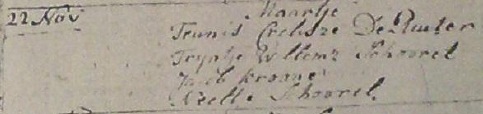 22 Nov Maartje
Teunis Cornelisze De Ruiter
Tryntje Willems Schoorel
Jacob Kroone
Neeltje Schoorel